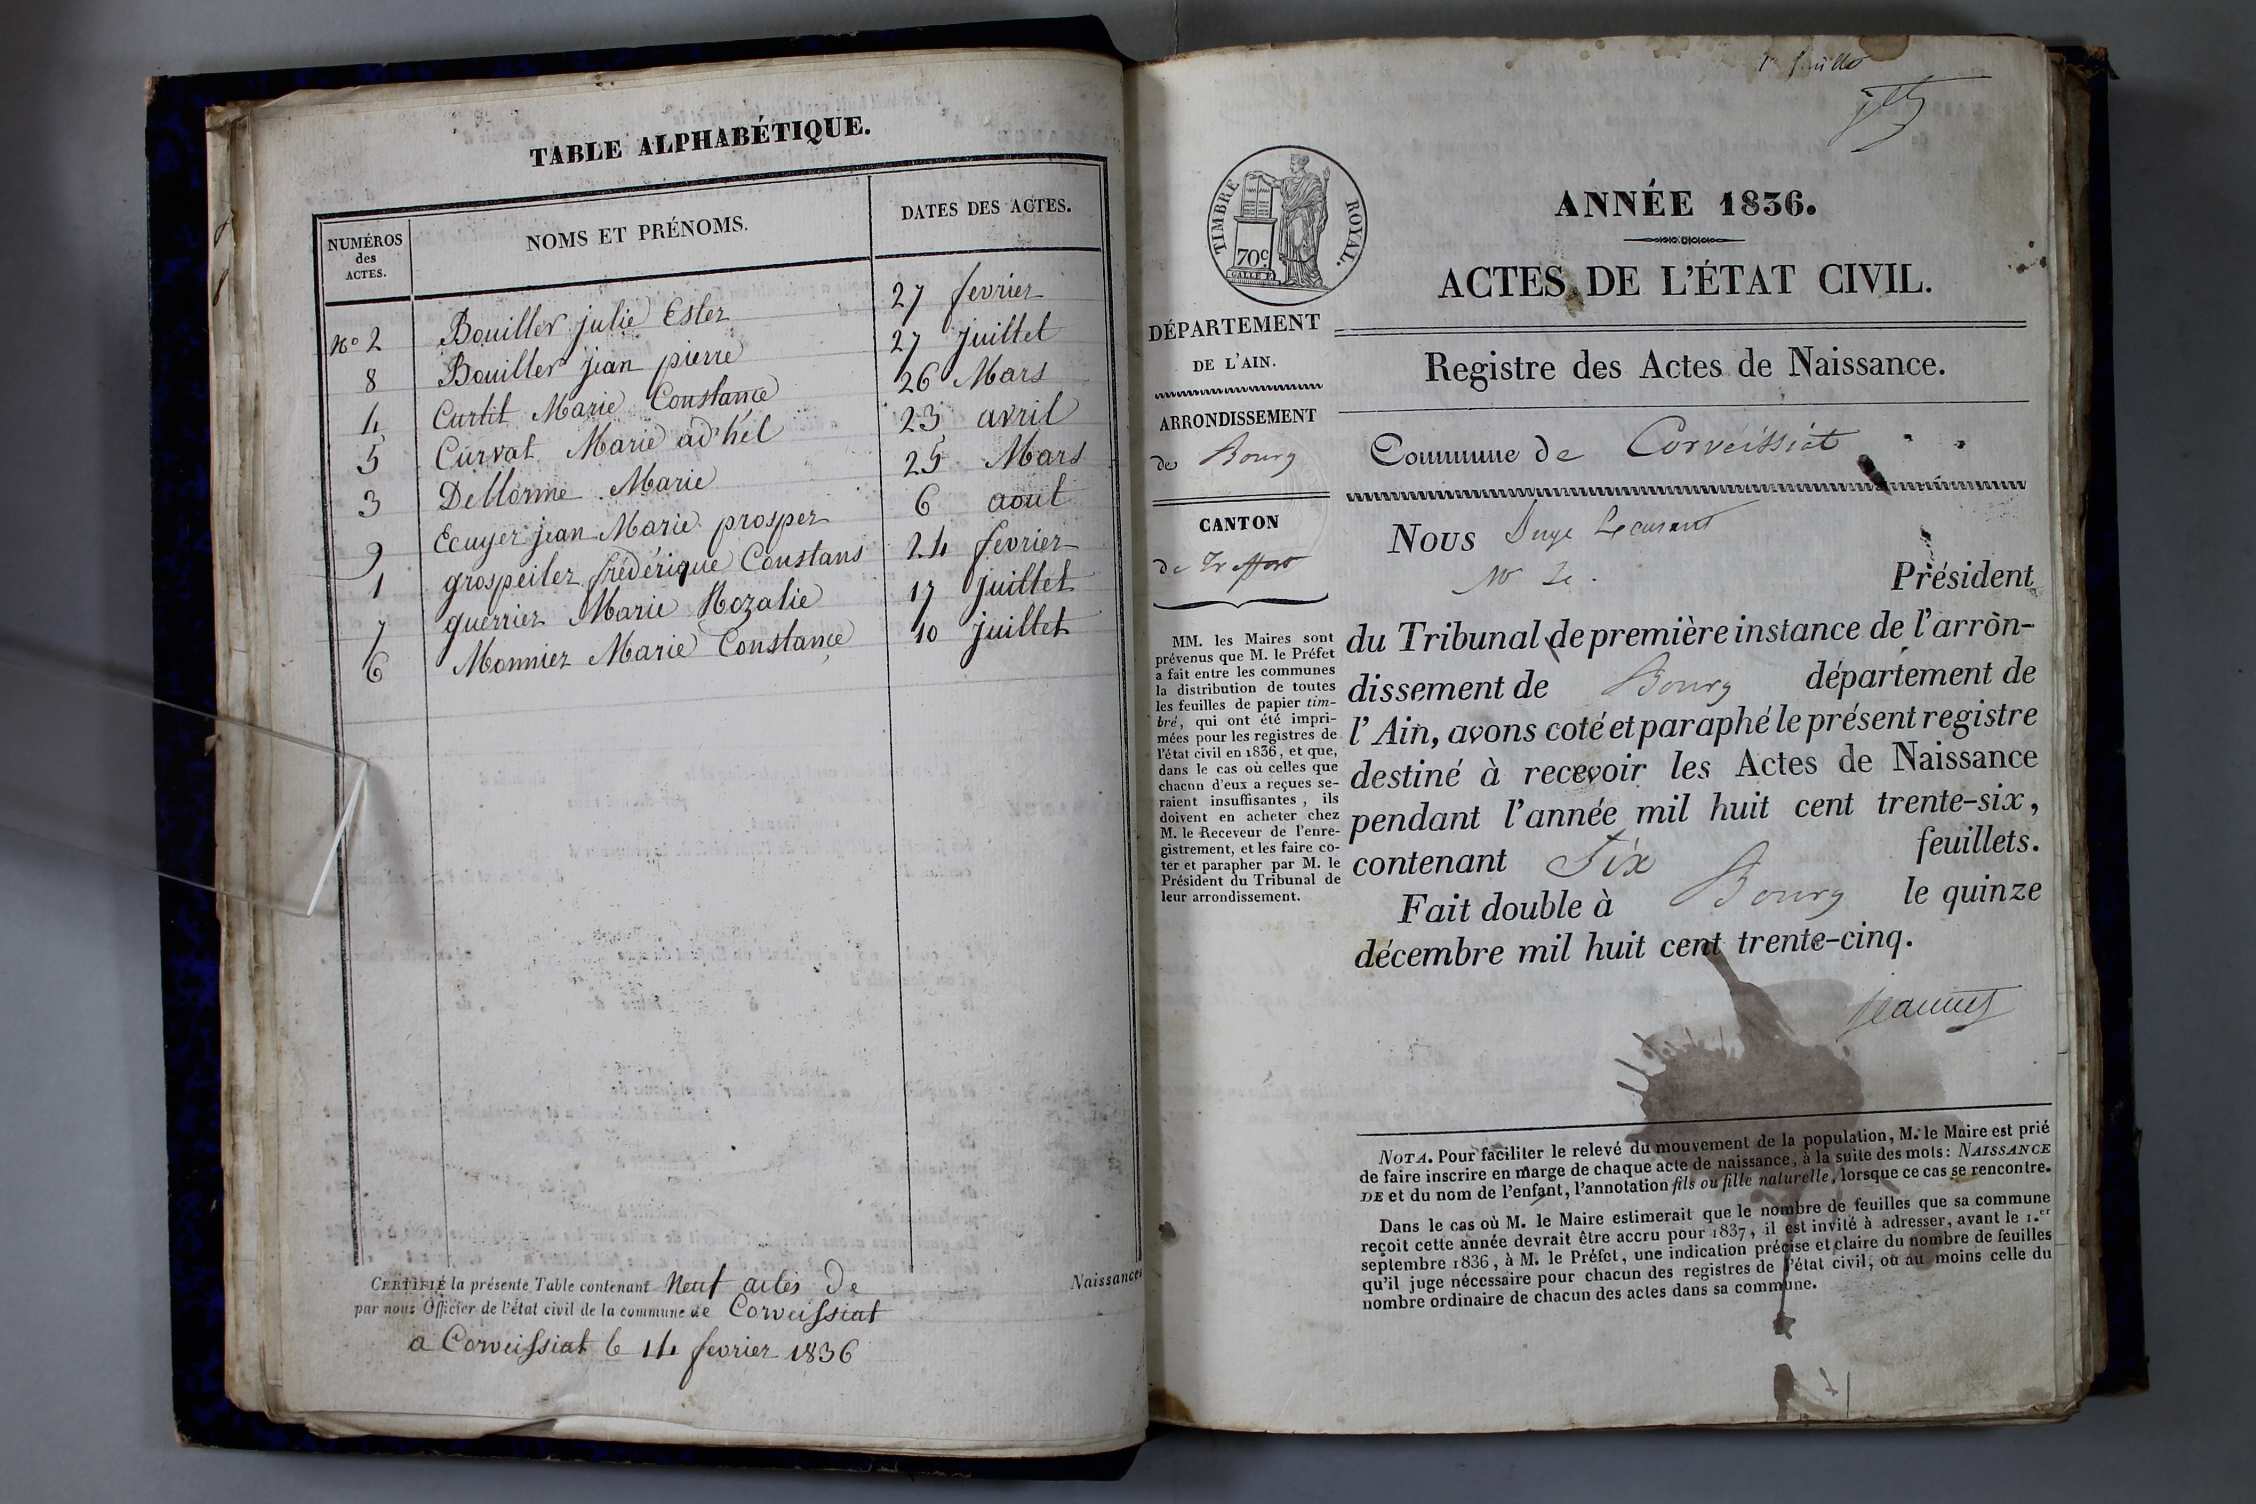 TABLE ALPHABÉTIQUE.
NUMÉROS
des
ACTES.
NOMS ET PRÉNOMS.
DATES DES ACTES.
No 2 Bouiller julie Ester 27 fevrier
8 Bouiller jean pierre 27 juillet
4 Curtit Marie Constance 26 Mars
5 Curvat Marie ad'hél 23 avril
3 Dellorme Marie 25 Mars
9 Ecuyer jean Marie prosper 6 aout
1 grospeiler frédérique Constans 24 fevrier
7 guerrier Marie Rozalie 17 juillet
6 Monnier Marie Constance 10 juillet
CERTIFIÉ la présente Table contenant Neuf actes De Naissances
par nous Officier de l'état civil de la commune de Corveissiat
a Corveissiat le 14 fevrier 1836
TIMBRE ROYAL.
70c.
ANNÉE 1836.
ACTES DE L'ÉTAT CIVIL.
Registre des Actes de Naissance.
Commune de Corveissiat
DÉPARTEMENT
DE L'AIN.
ARRONDISSEMENT
de Bourg
CANTON
de Treffort
MM. les Maires sont
prévenus que M. le Préfet
a fait entre les communes
la distribution de toutes
les feuilles de papier tim-
bré, qui ont été impri-
mées pour les registres de
l'état civil en 1836, et que,
dans le cas où celles que
chacun d'eux a reçues se-
raient insuffisantes, ils
doivent en acheter chez
M. le Receveur de l'enre-
gistrement, et les faire co-
ter et parapher par M. le
Président du Tribunal de
leur arrondissement.
Nous Juge
Président
du Tribunal de première instance de l'arron-
dissement de Bourg département de
l'Ain, avons coté et paraphé le présent registre
destiné à recevoir les Actes de Naissance
pendant l'année mil huit cent trente-six,
contenant Six feuillets.
Fait double à Bourg le quinze
décembre mil huit cent trente-cinq.
NOTA. Pour faciliter le relevé du mouvement de la population, M. le Maire est prié
de faire inscrire en marge de chaque acte de naissance, à la suite des mots: NAISSANCE
DE et du nom de l'enfant, l'annotation fils ou fille naturelle, lorsque ce cas se rencontre.
Dans le cas où M. le Maire estimerait que le nombre de feuilles que sa commune
reçoit cette année devrait être accru pour 1837, il est invité à adresser, avant le 1.er
septembre 1836, à M. le Préfet, une indication précise et claire du nombre de feuilles
qu'il juge nécessaire pour chacun des registres de l'état civil, ou au moins celle du
nombre ordinaire de chacun des actes dans sa commune.